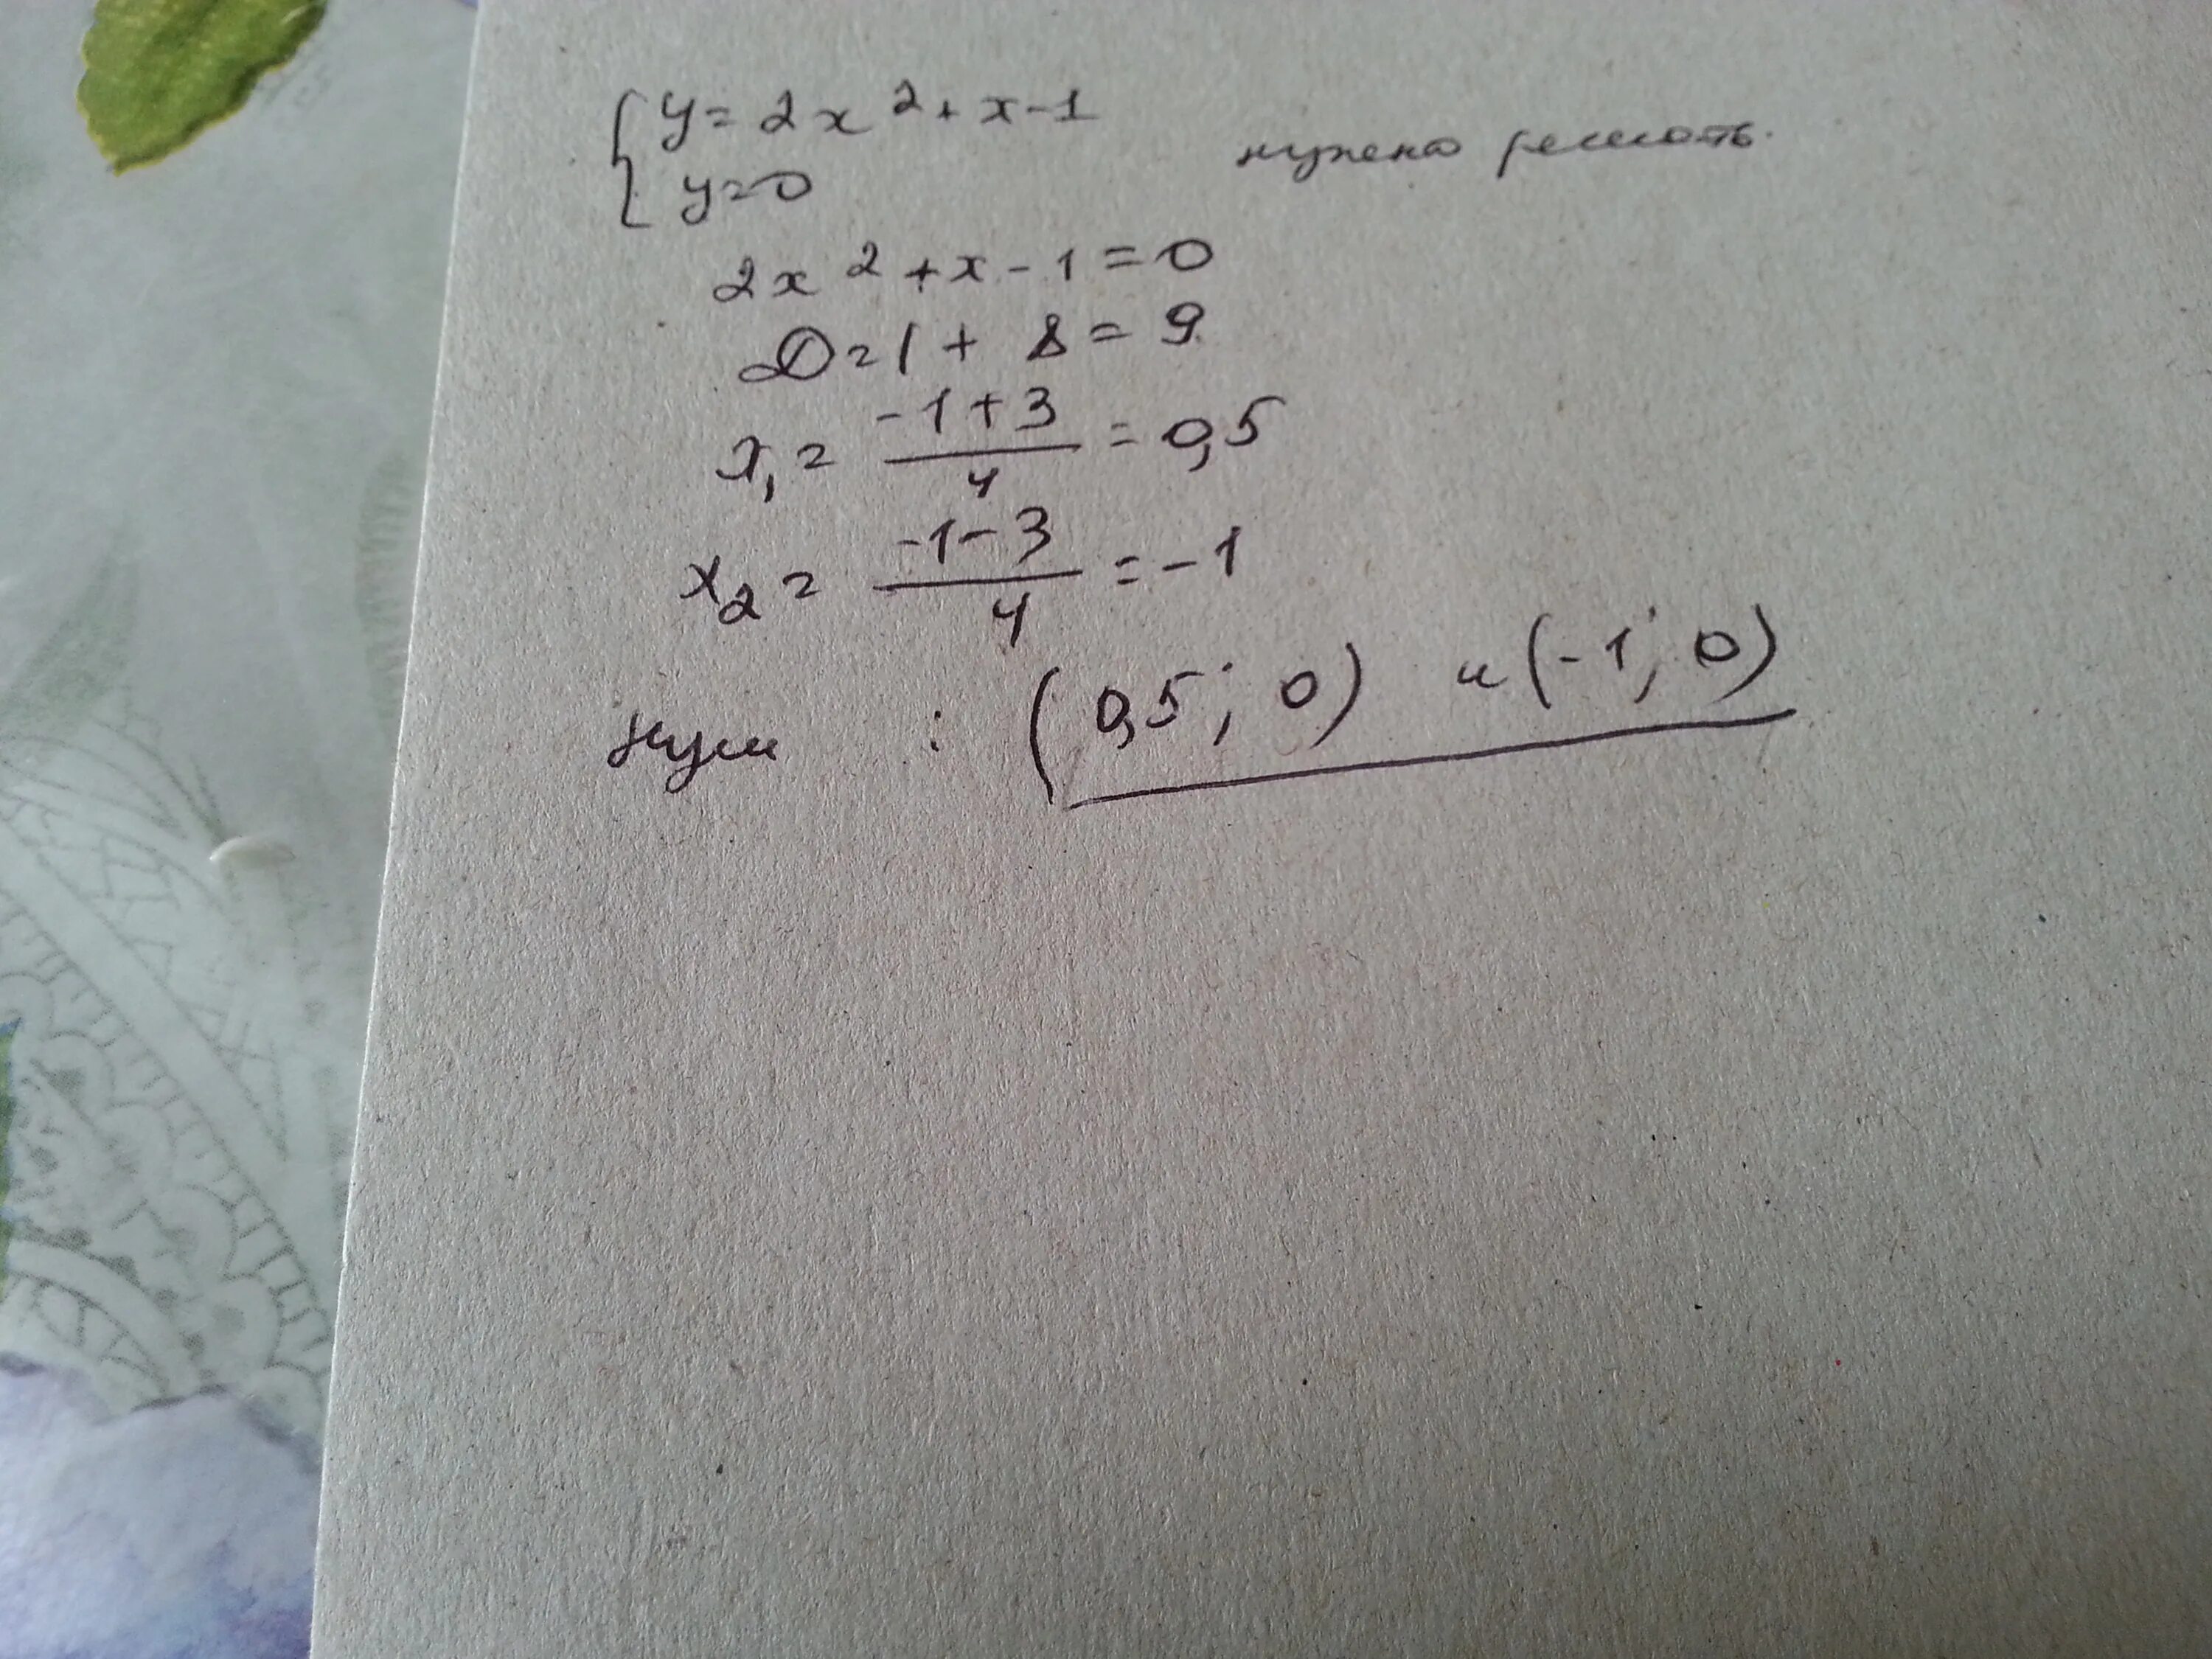 { y = 2x² + x - 1 нужно решать.
y = 0
2x² + x - 1 = 0
D = 1 + 8 = 9
x₁ = (-1 + 3)/4 = 0,5
x₂ = (-1 - 3)/4 = -1
нули : (0,5; 0) и (-1; 0)